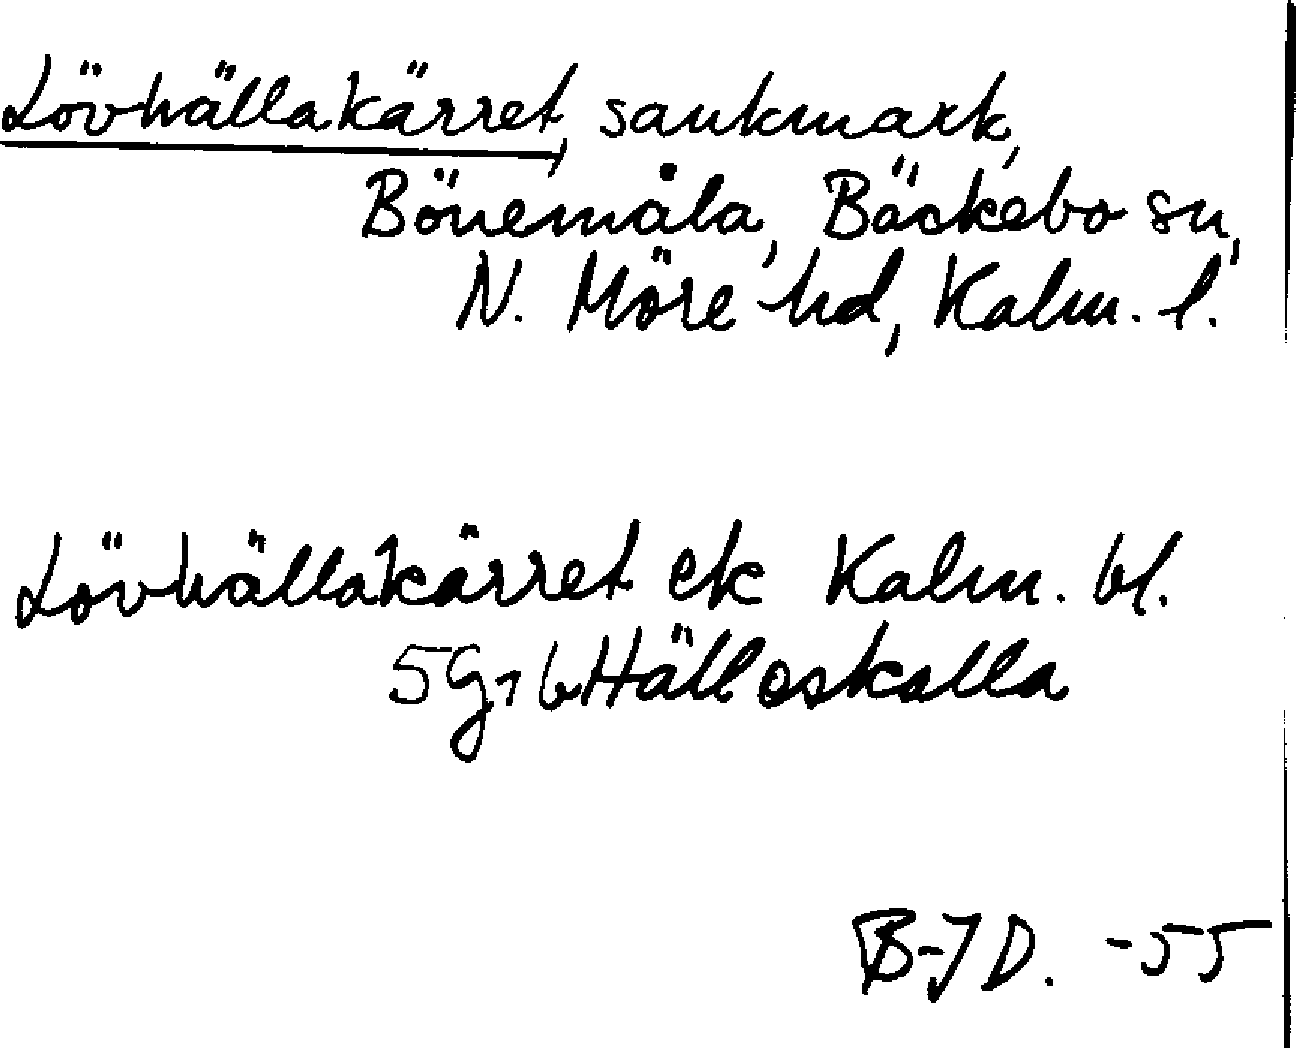 Lövhällakärret, sankmark,
Bönemåla, Bäckebo sn,
N. Möre hd, Kalm. l.
Lövhällakärret ek Kalm. bl.
5G1b Hälleskalla
B-JD. -55